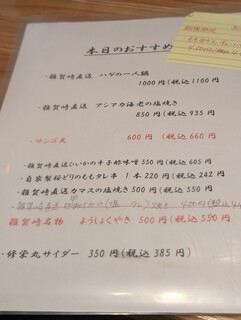 本日のおすすめ
・雑賀崎直送 ハゲの一人鍋
1000円(税込1100円
・雑賀崎直送 アシアカ海老の塩焼き
850円(税込935円
・サンゴ天 600円(税込660円
・雑賀崎直送ひいかの干子姉味噌 550円(税込605円
・自家製桜どりのももタレ串 1本220円(税込242円
・雑賀崎直送カマスの塩焼き 500円(税込550円
・雑賀崎直送
雑賀崎名物 ようしょくやき 500円(税込550円
・修栄丸サイダー 350円(税込385円)